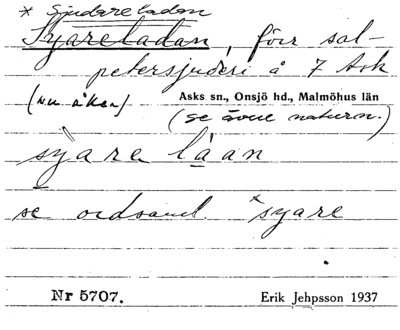 * Sjudareladan
Syareladan, förr sal-
petersjuderi å 7 Ask
(nu åker)
Asks sn., Onsjö hd., Malmöhus län
(se även naturn.)
syare låan
se ordsaml. *syare
Nr 5707.
Erik Jehpsson 1937